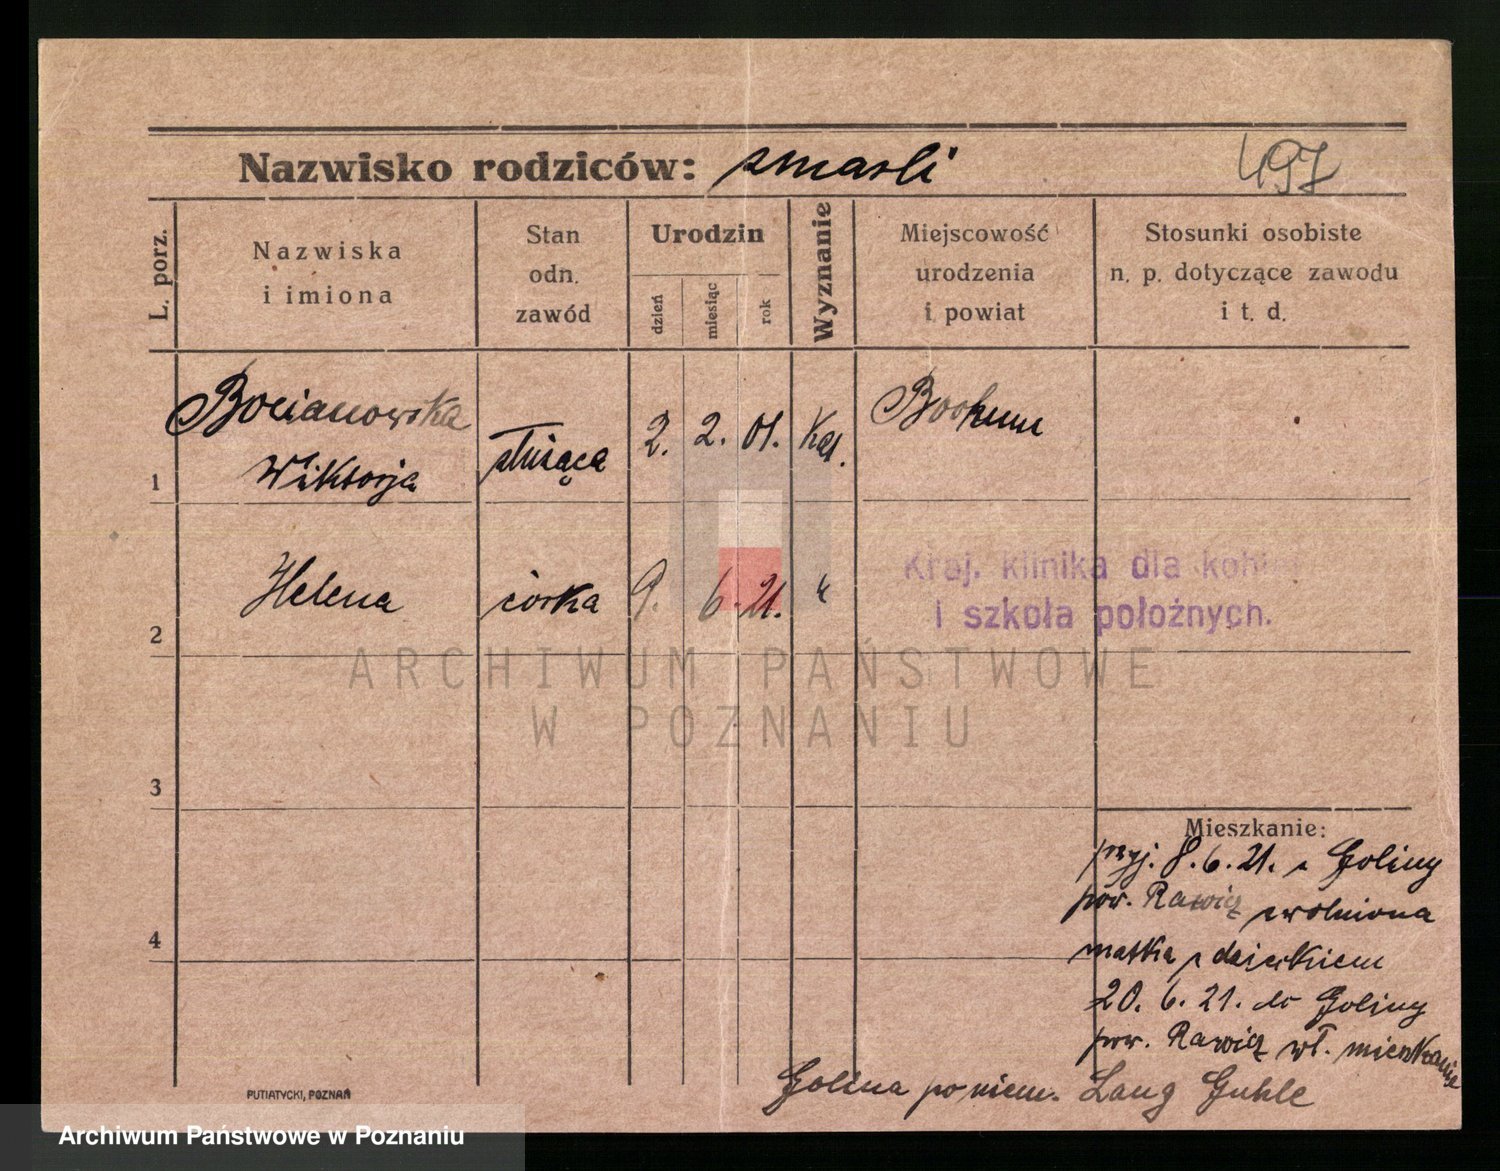 Nazwisko rodziców: zmarli
497
L. porz.
Nazwiska
i imiona
Stan
odn.
zawód
Urodzin
dzień
miesiąc
rok
Wyznanie
Miejscowość
urodzenia
i powiat
Stosunki osobiste
n. p. dotyczące zawodu
i t. d.
1
Bocianowska
Wiktorja
służąca
2. 2. 01.
Kat.
Bochum
2
Helena
córka
9. 6. 21.
"
Kraj. klinika dla kobiet
i szkoła położnych.
ARCHIWUM PAŃSTWOWE
W POZNANIU
3
4
Mieszkanie:
przyj. 8. 6. 21. z Goliny
pow. Rawicz zwolniona
matka z dzieckiem
20. 6. 21. do Goliny
pow. Rawicz wł. mieszkanie
Golina po niem. Lang Guhle
PUTIATYCKI, POZNAŃ
Archiwum Państwowe w Poznaniu